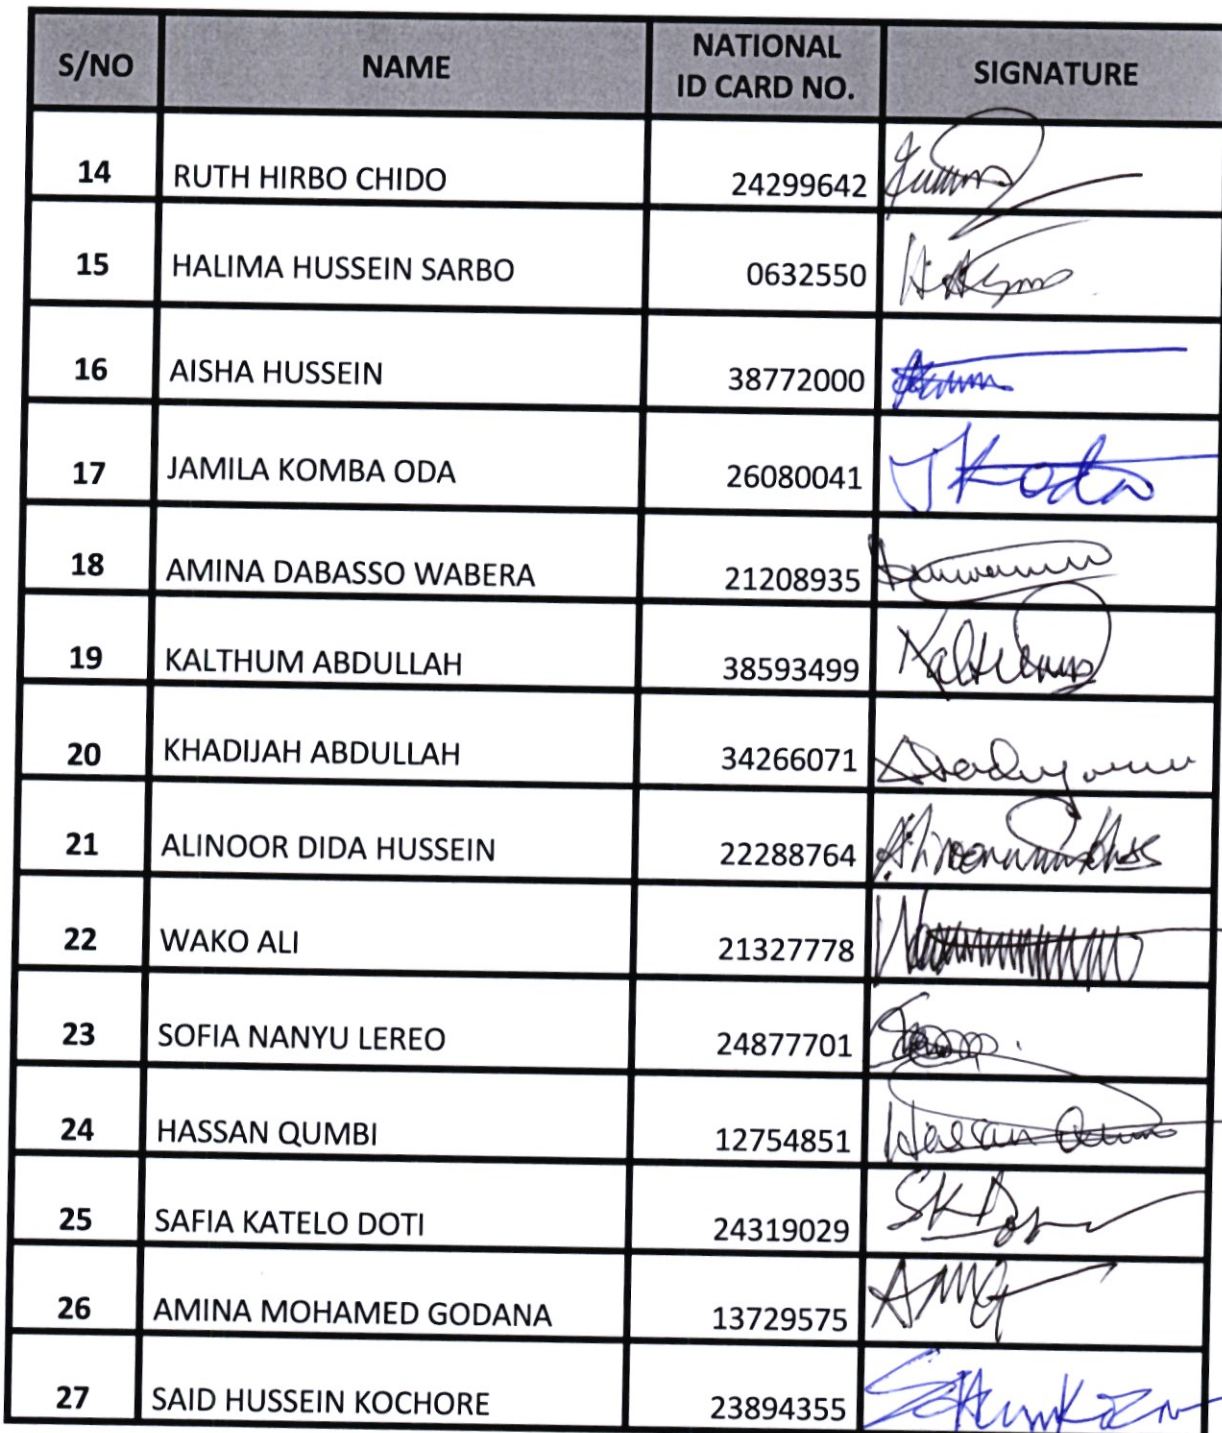 S/NO NAME NATIONAL ID CARD NO. SIGNATURE
14 RUTH HIRBO CHIDO 24299642
15 HALIMA HUSSEIN SARBO 0632550
16 AISHA HUSSEIN 38772000
17 JAMILA KOMBA ODA 26080041 JKoda
18 AMINA DABASSO WABERA 21208935
19 KALTHUM ABDULLAH 38593499
20 KHADIJAH ABDULLAH 34266071
21 ALINOOR DIDA HUSSEIN 22288764
22 WAKO ALI 21327778
23 SOFIA NANYU LEREO 24877701
24 HASSAN QUMBI 12754851 Hassan
25 SAFIA KATELO DOTI 24319029
26 AMINA MOHAMED GODANA 13729575 AMG
27 SAID HUSSEIN KOCHORE 23894355